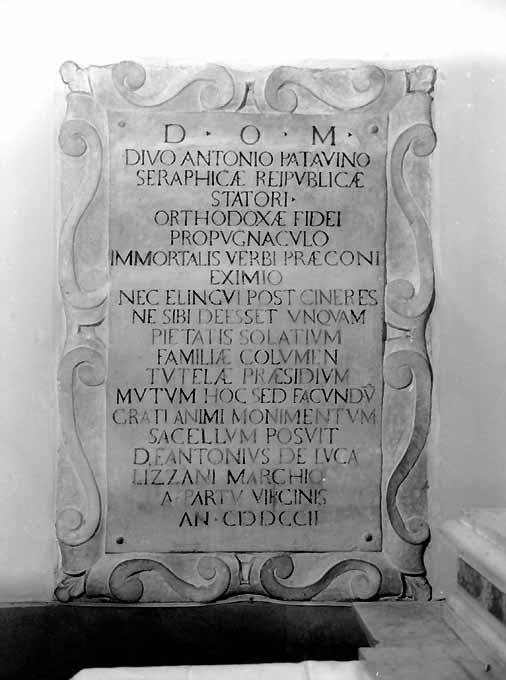 D · O · M ·
DIVO ANTONIO PATAVINO
SERAPHICÆ REIPVBLICÆ
STATORI ·
ORTHODOXÆ FIDEI
PROPVGNACVLO
IMMORTALIS VERBI PRÆCONI
EXIMIO
NEC ELINGVI POST CINERES
NE SIBI DEESSET VNQVAM
PIETATIS SOLATIVM
FAMILIÆ COLVMEN
TVTELÆ PRÆSIDIVM
MVTVM HOC SED FACVNDŪ
GRATI ANIMI MONIMENTVM
SACELLVM POSVIT
D. FANTONIVS DE LVCA
LIZZANI MARCHIO
A PARTV VIRGINIS
AN · CIƆDCCII